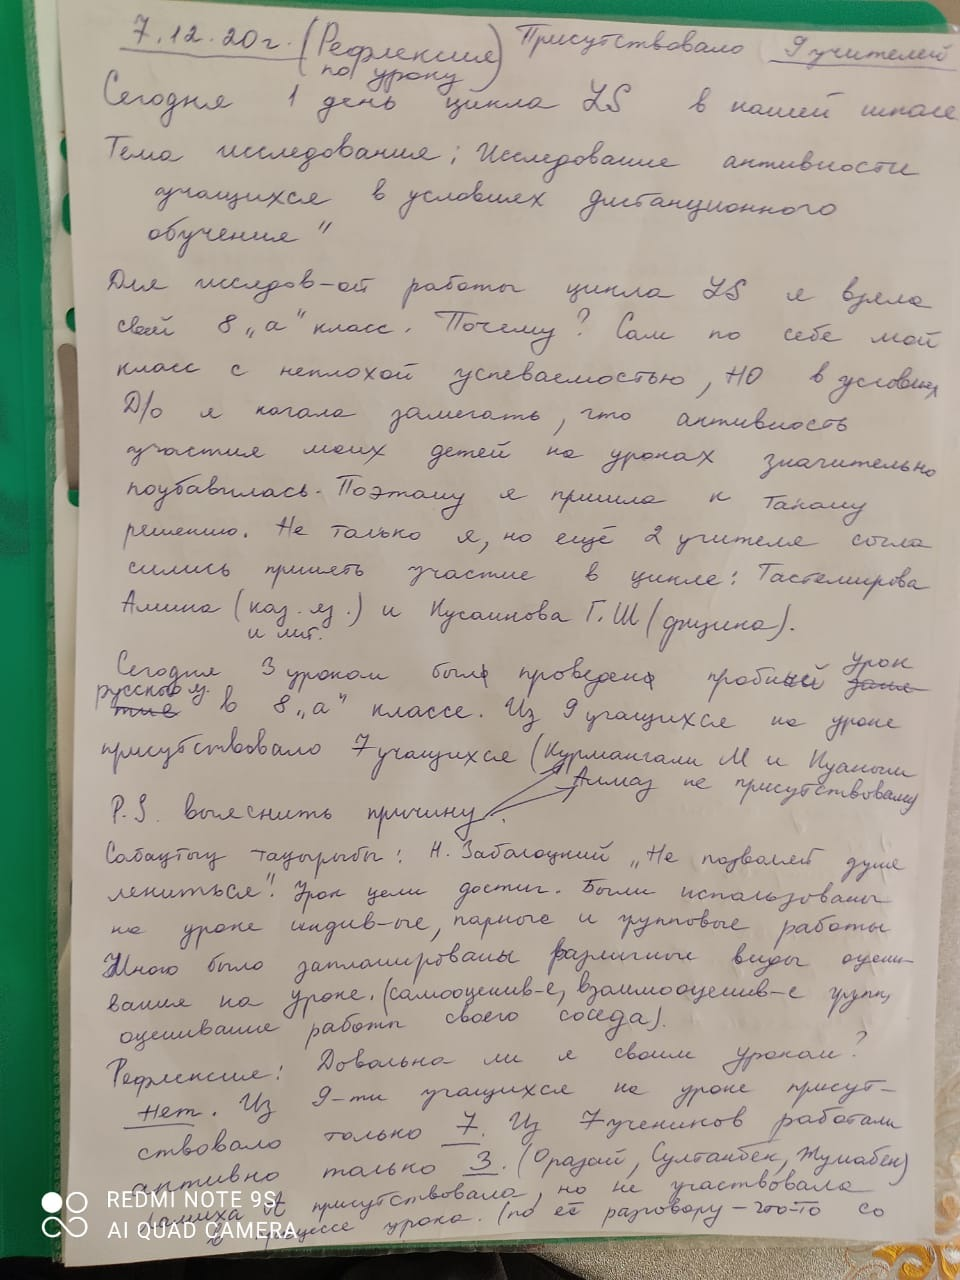 7.12.20г. (Рефлексия по уроку) Присутствовало 9 учителей
Сегодня 1 день цикла LS в нашей школе
Тема исследования; Исследование активности
учащихся в условиях дистанционного
обучения"
Для исследов-ой работы цикла LS я взяла
свой 8 „а" класс. Почему? Сам по себе мой
класс с неплохой успеваемостью, НО в условиях
Д/о я начала замечать, что активность
участия моих детей на уроках значительно
поубавилась. Поэтому я пришла к такому
решению. Не только я, но ещё 2 учителя согла
сились принять участие в цикле: Тастемирова
Амина (каз. яз. и лит.) и Кусаинова Г.Ш (физика).
Сегодня 3 уроком был проведен пробный урок
русского я. в 8 „а" классе. Из 9 учащихся на уроке
присутствовало 7 учащихся (Курмангали М и Куаныш
Алмаз не присутствовали)
P.S. выяснить причину.
Сабақтың тақырыбы: Н. Заболоцкий „Не позволяй душе
лениться". Урок цели достиг. Были использованы
на уроке индив-ые, парные и групповые работы
Мною было запланированы различные виды оцени-
вания на уроке. (самооценив-е, взаимооценив-е групп,
оценивание работы своего соседа).
Рефлексия: Довольна ли я своим уроком?
Нет. Из 9-ти учащихся на уроке присут-
ствовало только 7. Из 7 учеников работали
активно только 3. (Оразай, Султанбек, Жумабек)
присутствовала, но не участвовала
в процессе урока. (по её разговору – что-то со